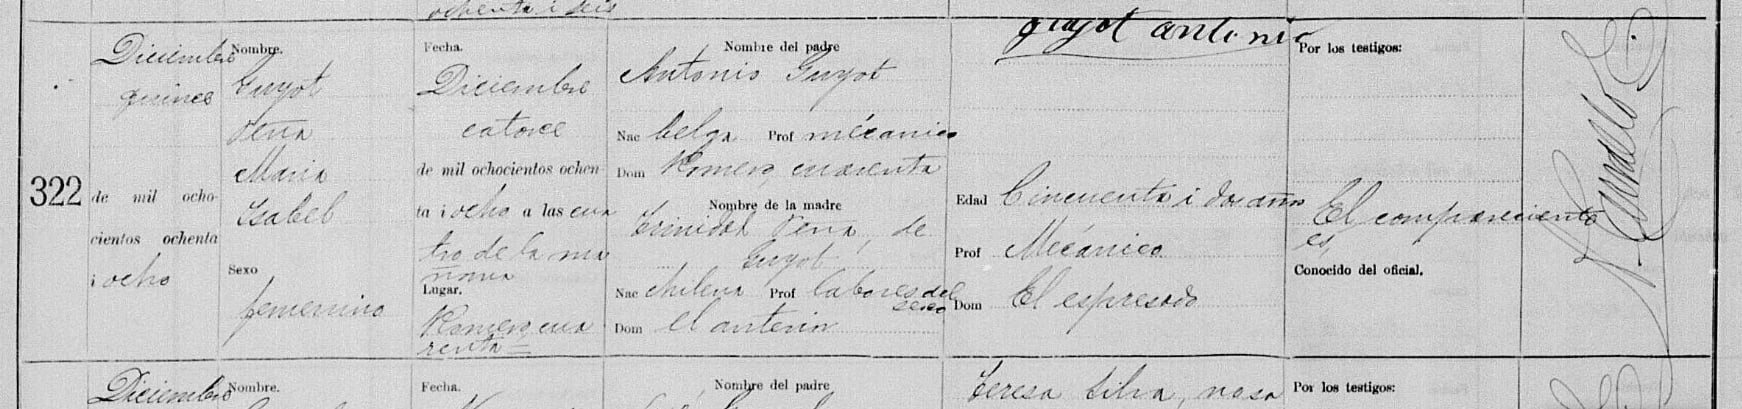 ochenta i seis
322
Diciembre
quince
de mil ocho-
cientos ochenta
i ocho
Nombre.
Guyot
Peña
Maria
Isabel
Sexo
femenino
Fecha.
Diciembre
catorce
de mil ochocientos ochen-
ta i ocho a las cua
tro de la ma
ñana
Lugar.
Romero, cua
renta
Nombre del padre
Antonio Guyot
Nac belga Prof mécanico
Dom Romero, cuarenta
Nombre de la madre
Trinidad Peña, de
Guyot
Nac chilena Prof labores del
sexo
Dom el anterior
guyot antonio
Edad Cincuenta i dos años
Prof Mecánico
Dom El espresado
Por los testigos:
El compareciente
es,
Conocido del oficial.
Diciembre
Nombre.
Fecha.
Nombre del padre
Teresa Silva,
Por los testigos: